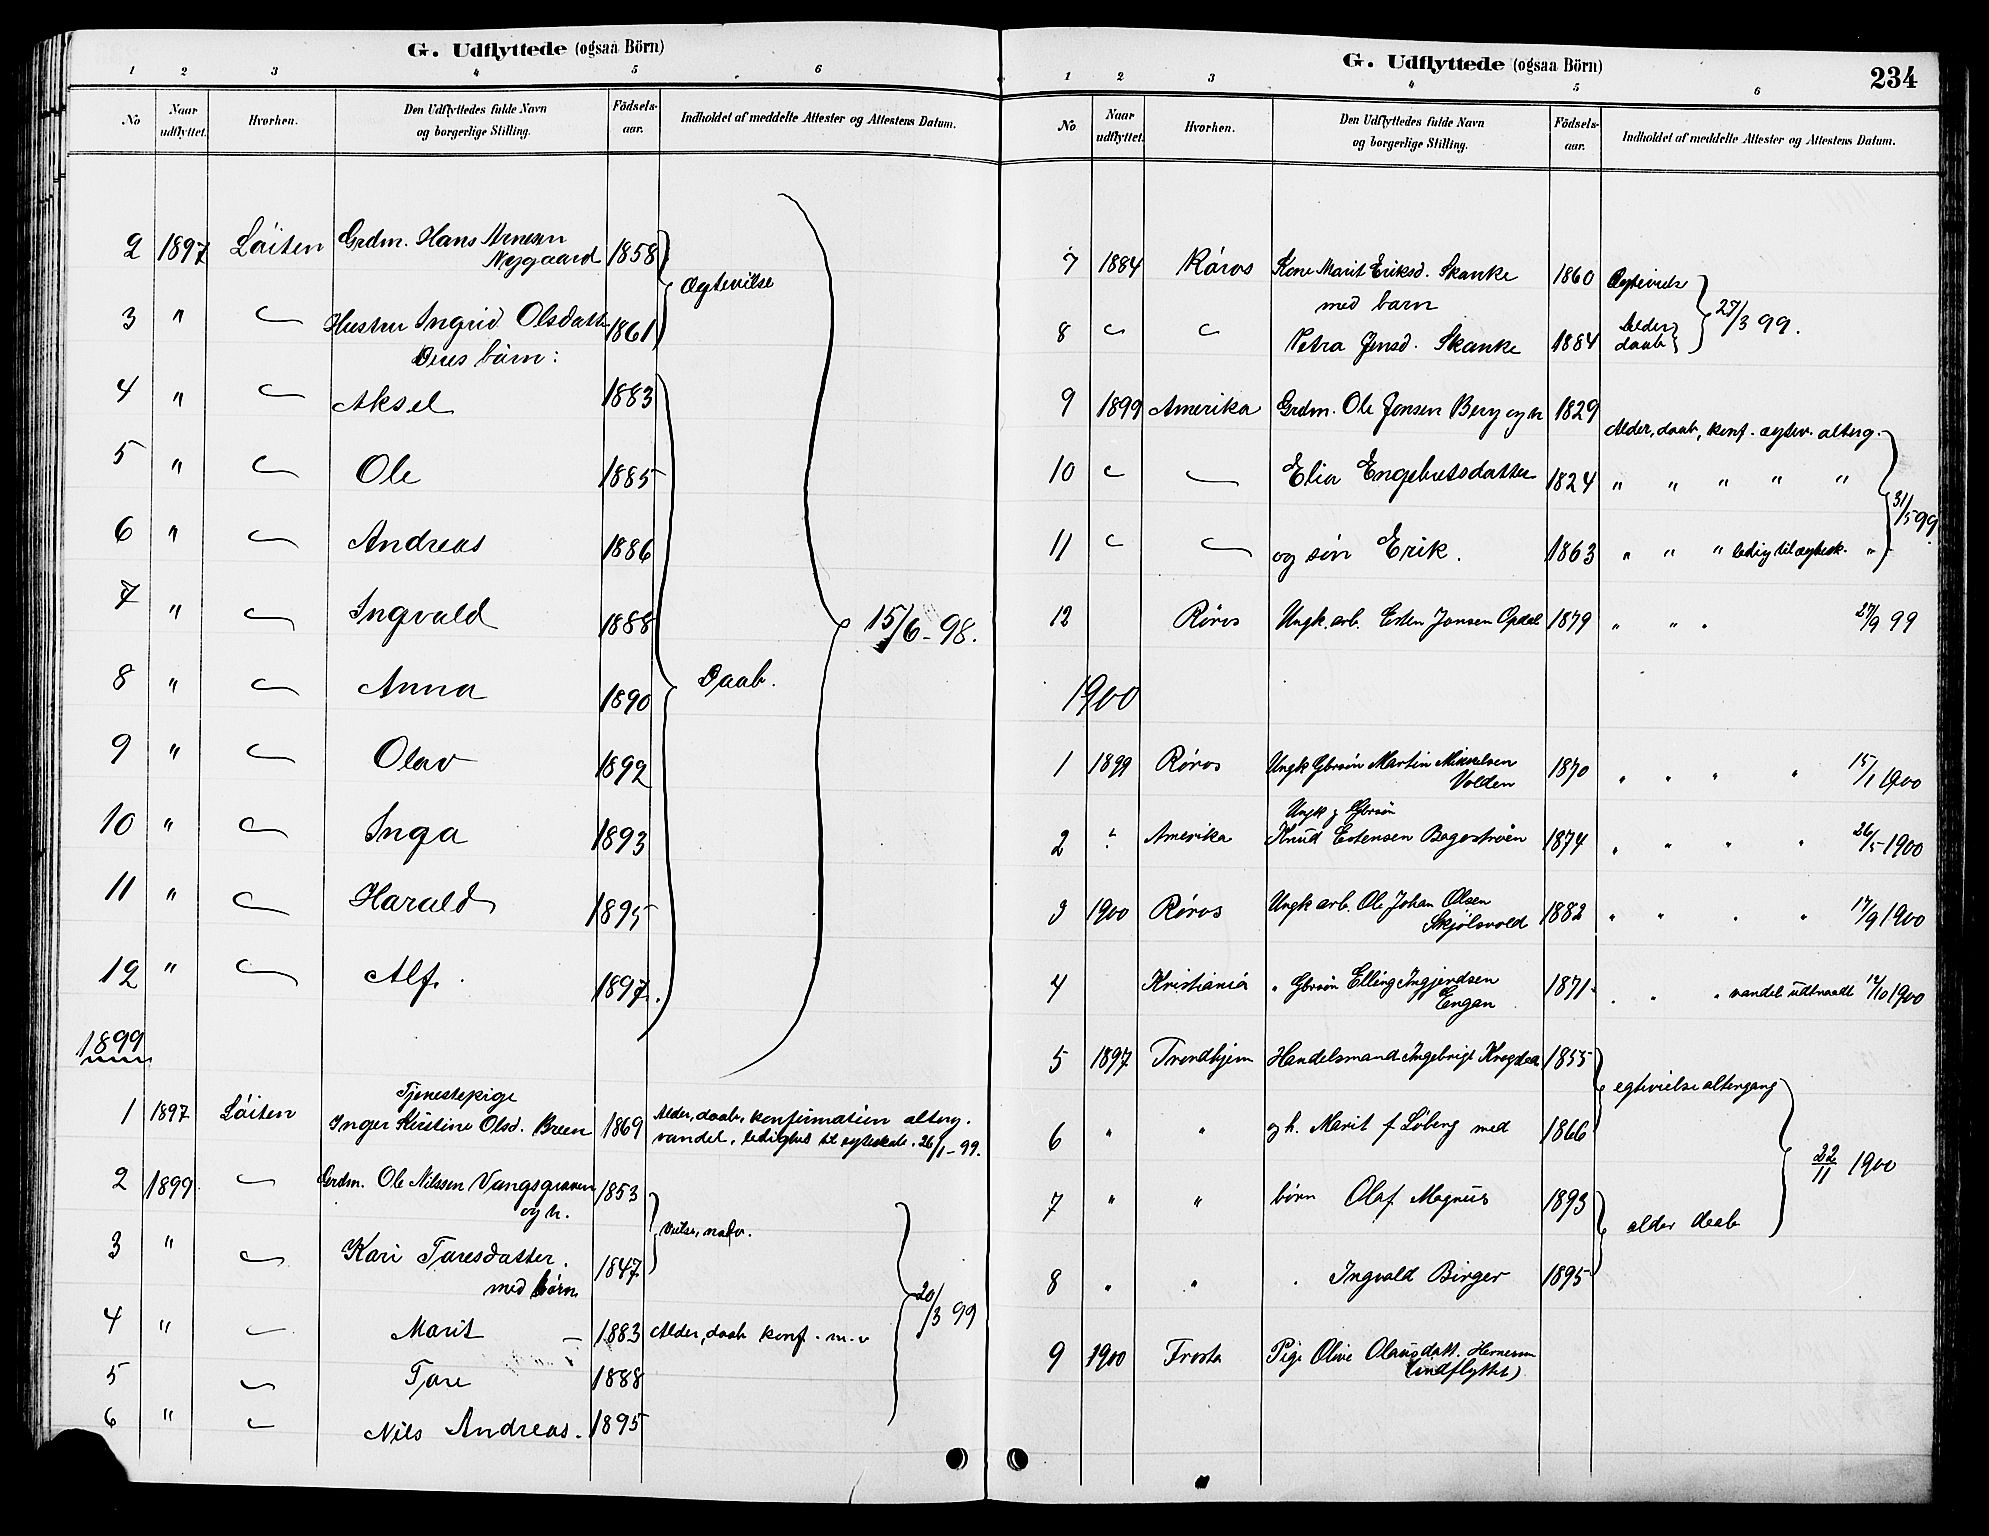 G. Udflyttede (ogsaa Börn)
1 2 3 4 5 6
No Naar udflyttet. Hvorhen. Den Udflyttedes fulde Navn og borgerlige Stilling. Födsels-aar. Indholdet af meddelte Attester og Attestens Datum.
2 1897 Löiten Grdm. Hans Arnesen Nygaard 1858 Ægtevilse
3 " Hustru Ingrid Olsdatter 1861
Deres börn:
4 " Aksel 1883
5 " Ole 1885
6 " Andreas 1886
7 " Ingvald 1888 15/6-98.
8 " Anna 1890 Daab.
9 " Olav 1892
10 " Inga 1893
11 " Harald 1895
12 " Alf. 1897.
1899
Tjenestepige
1 1897 Löiten Inger Kirstine Olsd. Breen 1869 Alder, daab, konfirmation alterg.
vandel, ledighed til egtesk. 26/1-99.
2 1899 Grdm. Ole Nilssen Vangsgraven 1853
og h.
vielse, natv.
3 " Kari Taresdatter. 1847
med börn
20/3 99
4 " Marit - 1883 Alder, daab konf. m. v
5 Tare 1888
6 " Nils Andreas. 1895
G. Udflyttede (ogsaa Börn) 234
1 2 3 4 5 6
No Naar udflyttet. Hvorhen. Den Udflyttedes fulde Navn og borgerlige Stilling. Födsels-aar. Indholdet af meddelte Attester og Attestens Datum.
7 1884 Røros Kone Marit Eriksd. Skanke 1860 Ægteviels
med barn 27/3 99.
8 Petra Jensd. Skanke 1884 Alder daab
9 1899 Amerika Grdm. Ole Jonsen Berg og h 1829
Alder, daab, konf. egtev. alterg.
10 Elia Engebretsdatter 1824 " " " " "
31/5 99.
11 og sön Erik. 1863 " " " ledig til egtesk. "
12 Røros Ungk. arb. Esten Jonsen Opdal 1879 " " " 27/9 99
1900
1 1899 Røros Ungk Gbrsön Martin Mikkelsen Volden 1870 " " " " 15/1 1900
Ungk g Gbrsön
2 Amerika Knud Estensen Bagostrøen 1874 " " " " 26/5 1900
3 1900 Røros Ungk arb. Ole Johan Olsen Skjölsvold 1882 " " " " 17/9 1900
4 Kristiania " Gbrsön Elling Ingjerdsen Engan 1871 " " " vandel udtraadt 12/10 1900
5 1897 Trondhjem Handelsmand Ingebrigt Krogdea 1855
egtevielse altergang
6 " " og h. Marit f Löberg med 1866
22/11 1900
7 " " börn Olaf Magnus 1893
alder daab
8 " " " Ingvald Birger 1895
9 1900 Frosta Pige Olive Olausdatt. Hernesm
(indflyttet)